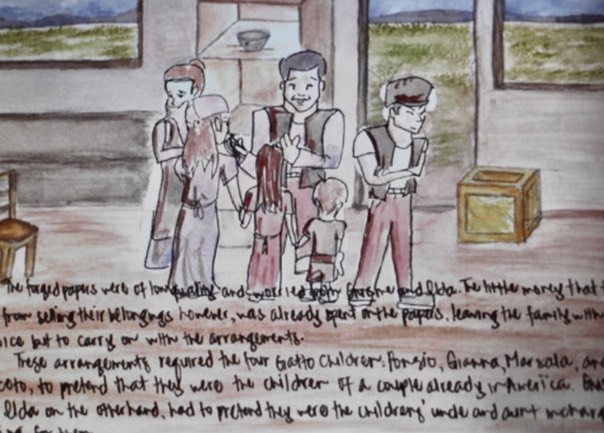 The forged papers were of low quality and worried both and Elda. The little money that
from selling their belongings however, was already spent on the papers, leaving the family with
ice but to carry on with the arrangements.
These arrangements required the four Gatto children: Fonzio, Gianna, Marsala, and
ceto, to pretend that they were the children of a couple already in America.
Elda on the other hand, had to pretend they were the childrens' uncle and aunt in charg
ing for them.